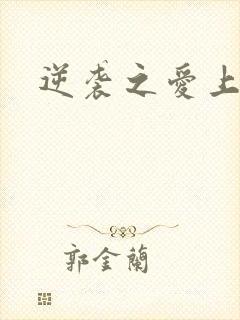 逆袭之愛上
郭金蘭